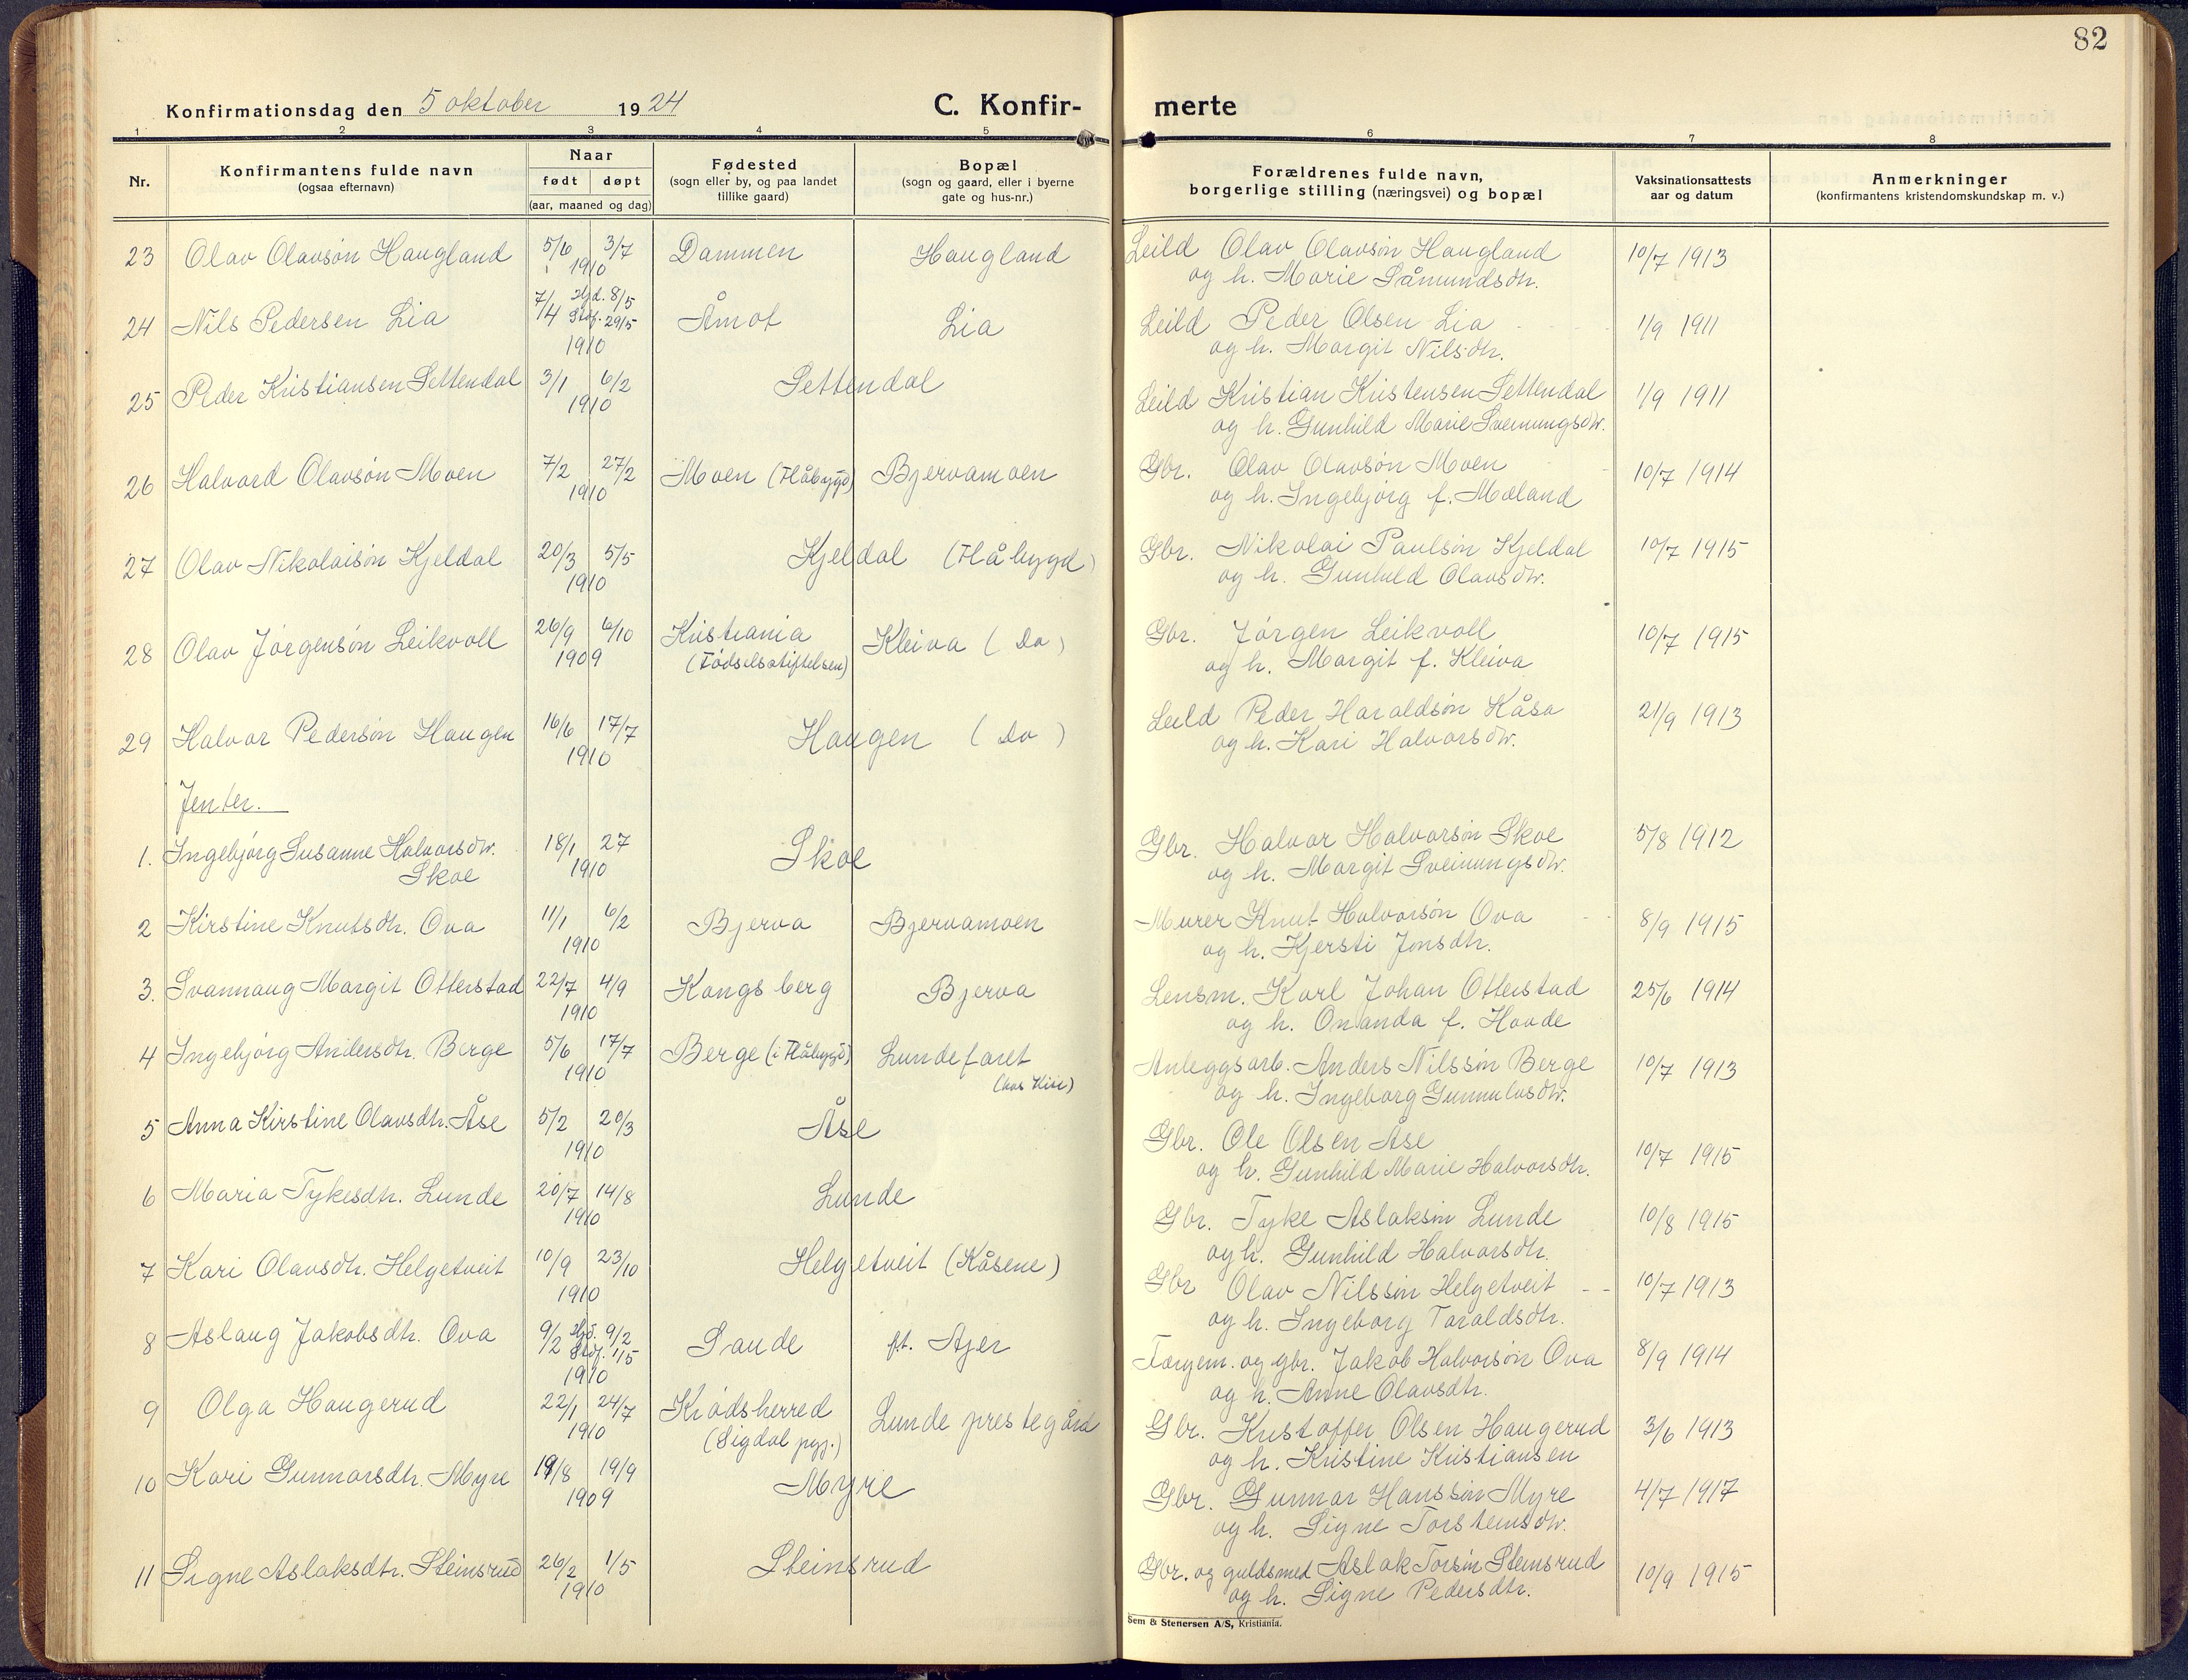 82
Konfirmationsdag den 5 oktober 1924
C. Konfir-
merte
1 2 3 4 5 6 7 8
Nr.
Konfirmantens fulde navn
(ogsaa efternavn)
Naar
født døpt
(aar, maaned og dag)
Fødested
(sogn eller by, og paa landet
tillike gaard)
Bopæl
(sogn og gaard, eller i byerne
gate og hus-nr.)
Forældrenes fulde navn,
borgerlige stilling (næringsvei) og bopæl
Vaksinationsattests
aar og datum
Anmerkninger
(konfirmantens kristendomskundskap m. v.)
23 Olav Olavsøn Haugland 5/6 3/7 Dammen Haugland Leild Olav Olavsøn Haugland 10/7 1913
1910 og h. Marie Såmundsdtr.
24 Nils Pedersen Lia 7/4 Hjd. 8/5 Åmot Lia Leild Peder Olsen Lia 1/9 1911
Stdf. 29/5
1910 og h. Margit Nilsdtr.
25 Peder Kristiansen Settendal 3/1 6/2 Settendal Leild Kristian Kristensen Settendal 1/9 1911
1910 og h. Gunhild Marie Sveinungsdtr.
26 Halvord Olavsøn Moen 7/2 27/2 Moen (Flåbygd) Bjervamoen Gbr. Olav Olavsøn Moen 10/7 1914
1910 og h. Ingebjørg f. Mæland
27 Olav Nikolaisøn Kjeldal 20/3 5/5 Kjeldal (Flåbygd) Gbr. Nikolai Paulsøn Kjeldal 10/7 1915
1910 og h. Gunhild Olavsdtr.
28 Olav Jørgensøn Leikvoll 26/9 6/10 Kristiania Kleiva (Do) Gbr. Jørgen Leikvoll 10/7 1915
1909 (Fødselsstiftelsen) og h. Margit f. Kleiva
29 Halvor Pedersøn Haugen 16/6 17/7 Haugen (Do) Leild Peder Haraldsøn Kåsa 21/9 1913
1910 og h. Kari Halvorsdtr.
Jenter.
1. Ingebjørg Susanne Halvorsdtr. 18/1 27 Skoe Gbr. Halvor Halvorsøn Skoe 5/8 1912
Skoe 1910 og h. Margit Sveinungsdtr.
2 Kirstine Knutsdtr. Ova 11/1 6/2 Bjerva Bjervamoen Murer Knut Halvorsøn Ova 8/9 1915
1910 og h. Kjersti Jonsdtr.
3. Svannaug Margit Otterstad 22/7 4/9 Kongsberg Bjerva Lensm. Karl Johan Otterstad 25/6 1914
1910 og h. Onanda f. Hovde
4 Ingebjørg Andersdtr. Berge 5/6 17/7 Berge (i Flåbygd) Lundefaret Anleggsarb. Anders Nilssøn Berge 10/7 1913
1910 (hos Kise) og h. Ingeborg Gunnulvsdtr.
5 Anna Kirstine Olavsdtr. Åse 5/2 20/3 Åse Gbr. Ole Olsen Åse 10/7 1915
1910 og h. Gunhild Marie Halvorsdtr.
6 Maria Tykesdtr. Lunde 20/7 14/8 Lunde Gbr. Tyke Aslaksøn Lunde 10/8 1915
1910 og h. Gunhild Halvorsdtr.
7 Kari Olavsdtr. Helgetveit 10/9 23/10 Helgetveit (Kåsene) Gbr Olav Nilssøn Helgetveit 10/7 1913
1910 og h. Ingeborg Taraldsdtr.
8 Aslaug Jakobsdtr. Ova 9/2 Hjd. 9/2 Sande pt. Ajer Færgem. og gbr. Jakob Halvorsøn Ova 8/9 1914
Stdf. 1/5
1910 og h. Anne Olavsdtr.
9 Olga Haugerud 22/1 24/7 Krødsherred Lunde prestegård Gbr. Kristoffer Olsen Haugerud 3/6 1913
1910 (Sigdal pgj.) og h. Kristine Kristiansen
10 Kari Gunnarsdtr. Myre 19/8 19/9 Myre Gbr. Gunnar Hanssøn Myre 4/7 1917
1909 og h. Signe Torsteinsdtr.
11 Signe Aslaksdtr. Steinsrud 26/2 1/5 Steinsrud Gbr. og guldsmed Aslak Torsøn Steinsrud 10/9 1915
1910 og h. Signe Pedersdtr.
Sem & Stenersen A/S, Kristiania.